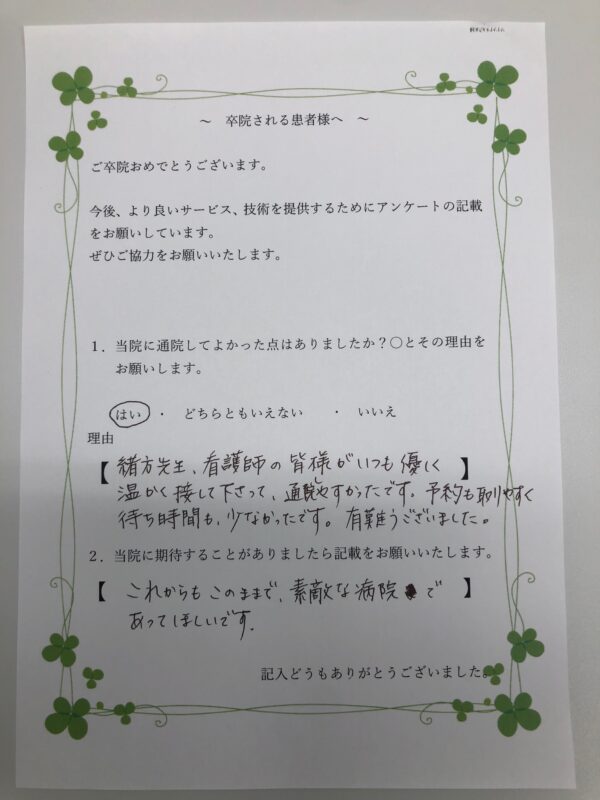 ～　卒院される患者様へ　～
ご卒院おめでとうございます。
今後、より良いサービス、技術を提供するためにアンケートの記載
をお願いしています。
ぜひご協力をお願いいたします。
１．当院に通院してよかった点はありましたか？〇とその理由を
お願いします。
はい　・　どちらともいえない　・　いいえ
理由
【緒方先生、看護師の皆様がいつも優しく】
温かく接して下さって、通院しやすかったです。予約も取りやすく
待ち時間も、少なかったです。有難うございました。
２．当院に期待することがありましたら記載をお願いいたします。
【これからもこのままで、素敵な病院で】
あってほしいです。
記入どうもありがとうございました。